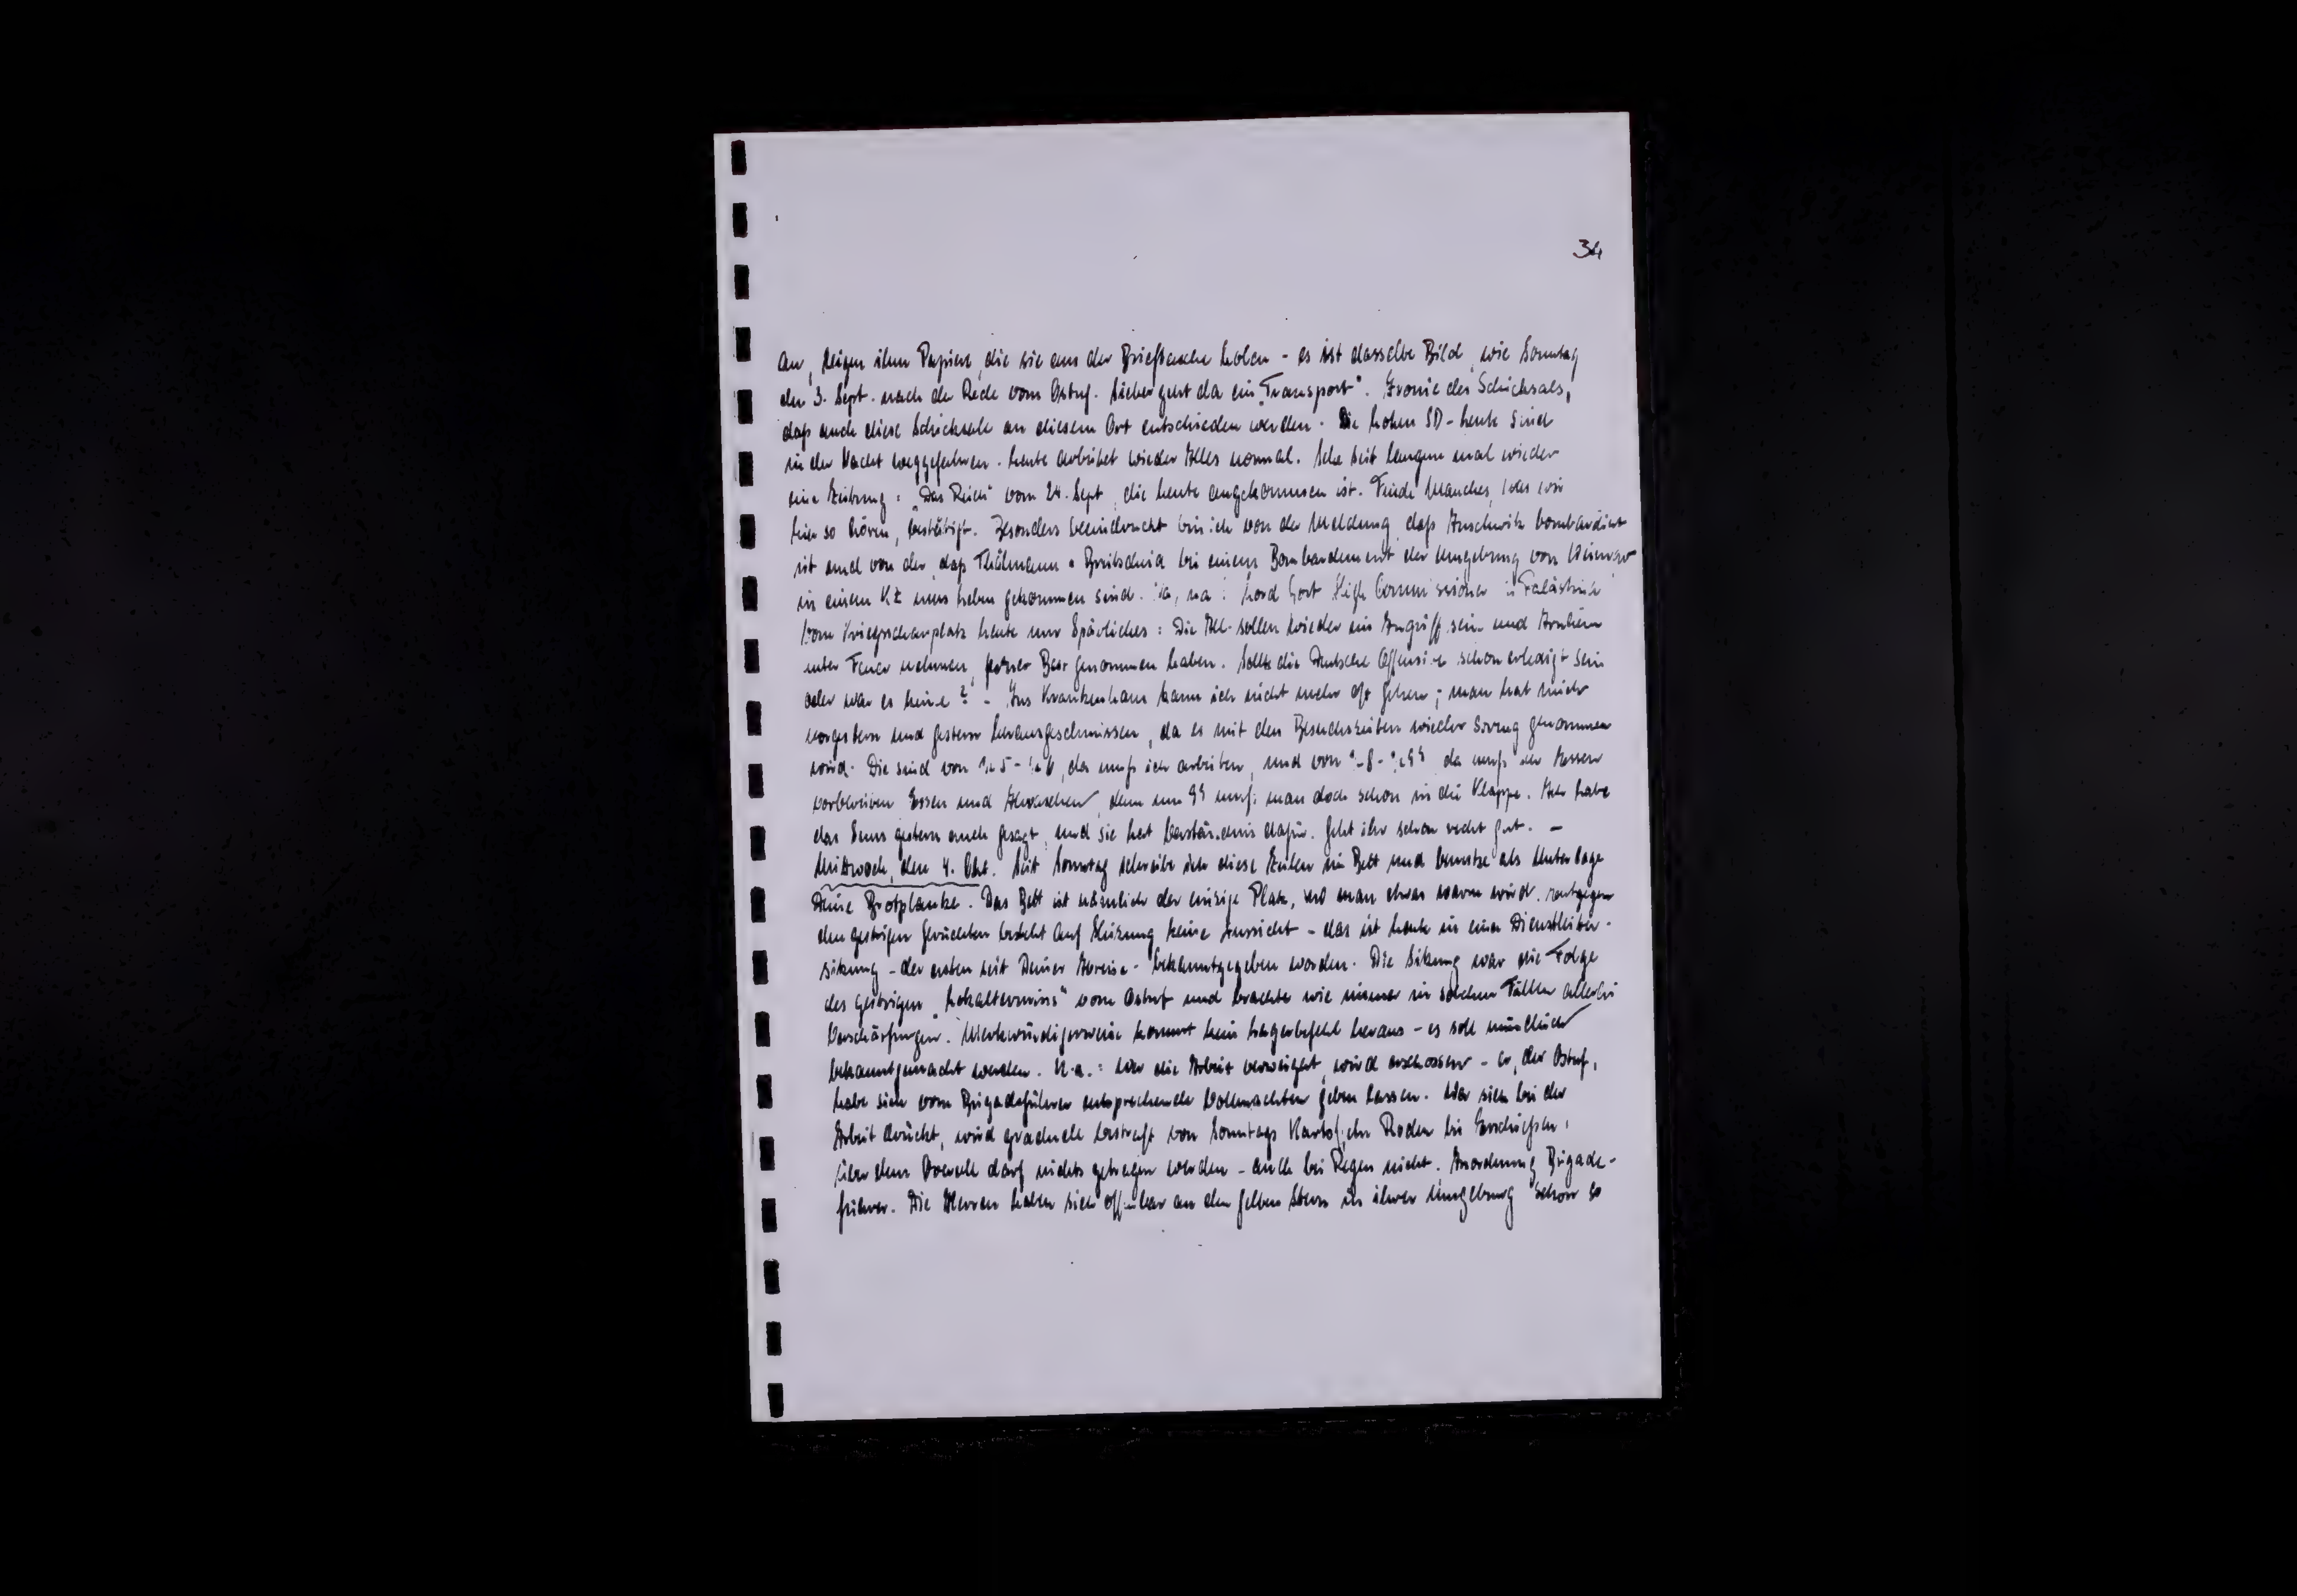 34
an, zeigen ihm Papiere, die sie aus der Brieftasche holen - es ist dasselbe Bild, wie Sonntag
den 3. Sept. nach der Rede vom Ostuf. Sicher geht da ein „Transport". Ironie des Schicksals,
daß auch diese Schicksale an diesem Ort entschieden werden. Die hohen SD-Leute sind
in der Nacht weggefahren. Heute arbeitet wieder Alles normal. Sehe seit langem mal wieder
eine Zeitung: „Das Reich" vom 24. Sept, die heute angekommen ist. Finde Manches, was wir
hier so hören, bestätigt. Besonders beeindruckt bin ich von der Meldung, daß Auschwitz bombardiert
ist und von der, daß Thälmann + Breitscheid bei einem Bombardement der Umgebung von Weimar
in einem KZ ums Leben gekommen sind. Na, na! Lord Gort High Commissioner in Palästina
Vom Kriegsschauplatz heute nur Spärliches: Die All. sollen wieder im Angriff sein und Arnheim
unter Feuer nehmen, ferner genommen haben. Sollte die Deutsche Offensive schon erledigt sein
oder war es keine? - Ins Krankenhaus kann ich nicht mehr oft gehen; man hat mich
vorgestern und gestern herausgeschmissen, da es mit den Besuchszeiten wieder streng genommen
wird. Die sind von ½ 5 - ½ 6, da muß ich arbeiten, und von - 8 - da muß ich Messer
vorbereiten Essen und Abwaschen, denn um 9 muß man doch schon in die Klappe. Ich habe
das gestern auch gesagt, und sie hat Verständnis dafür. Geht ihr schon recht gut. -
Mittwoch, den 4. Okt. Seit Sonntag schreibe ich diese Zeilen im Bett und benutze als Unterlage
Deine Brotplanke. Das Bett ist nämlich der einzige Platz, wo man etwas warm wird. Entgegen
den gestrigen Gerüchten besteht auf Heizung keine Aussicht - das ist heute in einer Dienstleiter-
sitzung - der ersten seit Deiner Abreise - bekanntgegeben worden. Die Sitzung war die Folge
des gestrigen „Lokaltermins" vom Ostuf und brachte wie immer in solchen Fällen allerlei
Verschärfungen. Merkwürdigerweise kommt kein Lagerbefehl heraus - es soll mündlich
bekanntgemacht werden. U.a.: Wer die Arbeit verweigert, wird erschossen - er, der Ostuf,
habe sich vom Brigadeführer entsprechende Vollmachten geben lassen. Wer sich bei der
Arbeit drückt, wird graduell bestraft von Sonntags Kartoffeln Roden bis Erschießen,
über dem Overall darf nichts getragen werden - auch bei Regen nicht. Anordnung Brigade-
führer. Die Herren haben sich offenbar an den gelben Stern in ihrer Umgebung schon so